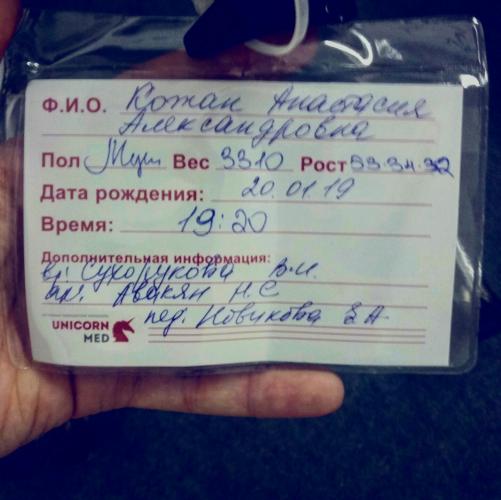 Ф.И.О. Кожан Анастасия
Александровна
Пол Муж Вес 3310 Рост 53.34.32
Дата рождения: 20.01.19
Время: 19:20
Дополнительная информация:
вр: Сухорукова В.И.
вр: Авакян Н.С
пед. Новикова Е.А.
UNICORN
MED